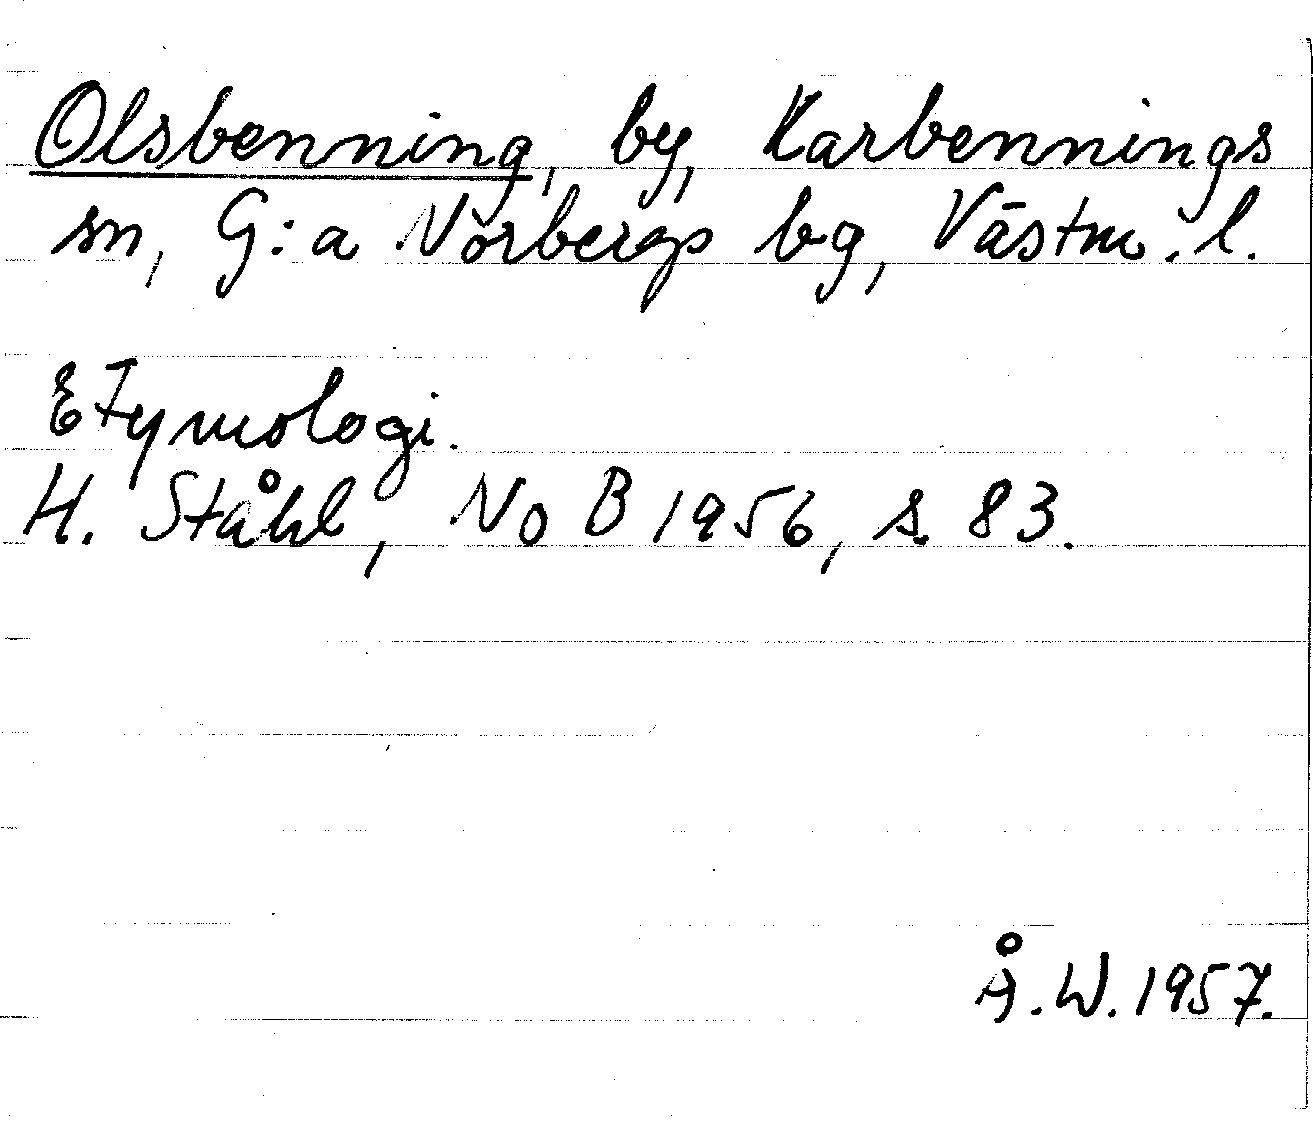 Olsbenning, by, Karbennings
sn, G:a Norbergs bg, Västm. l.
Etymologi.
H. Ståhl, NoB 1956, s. 83.
Å.W. 1957.